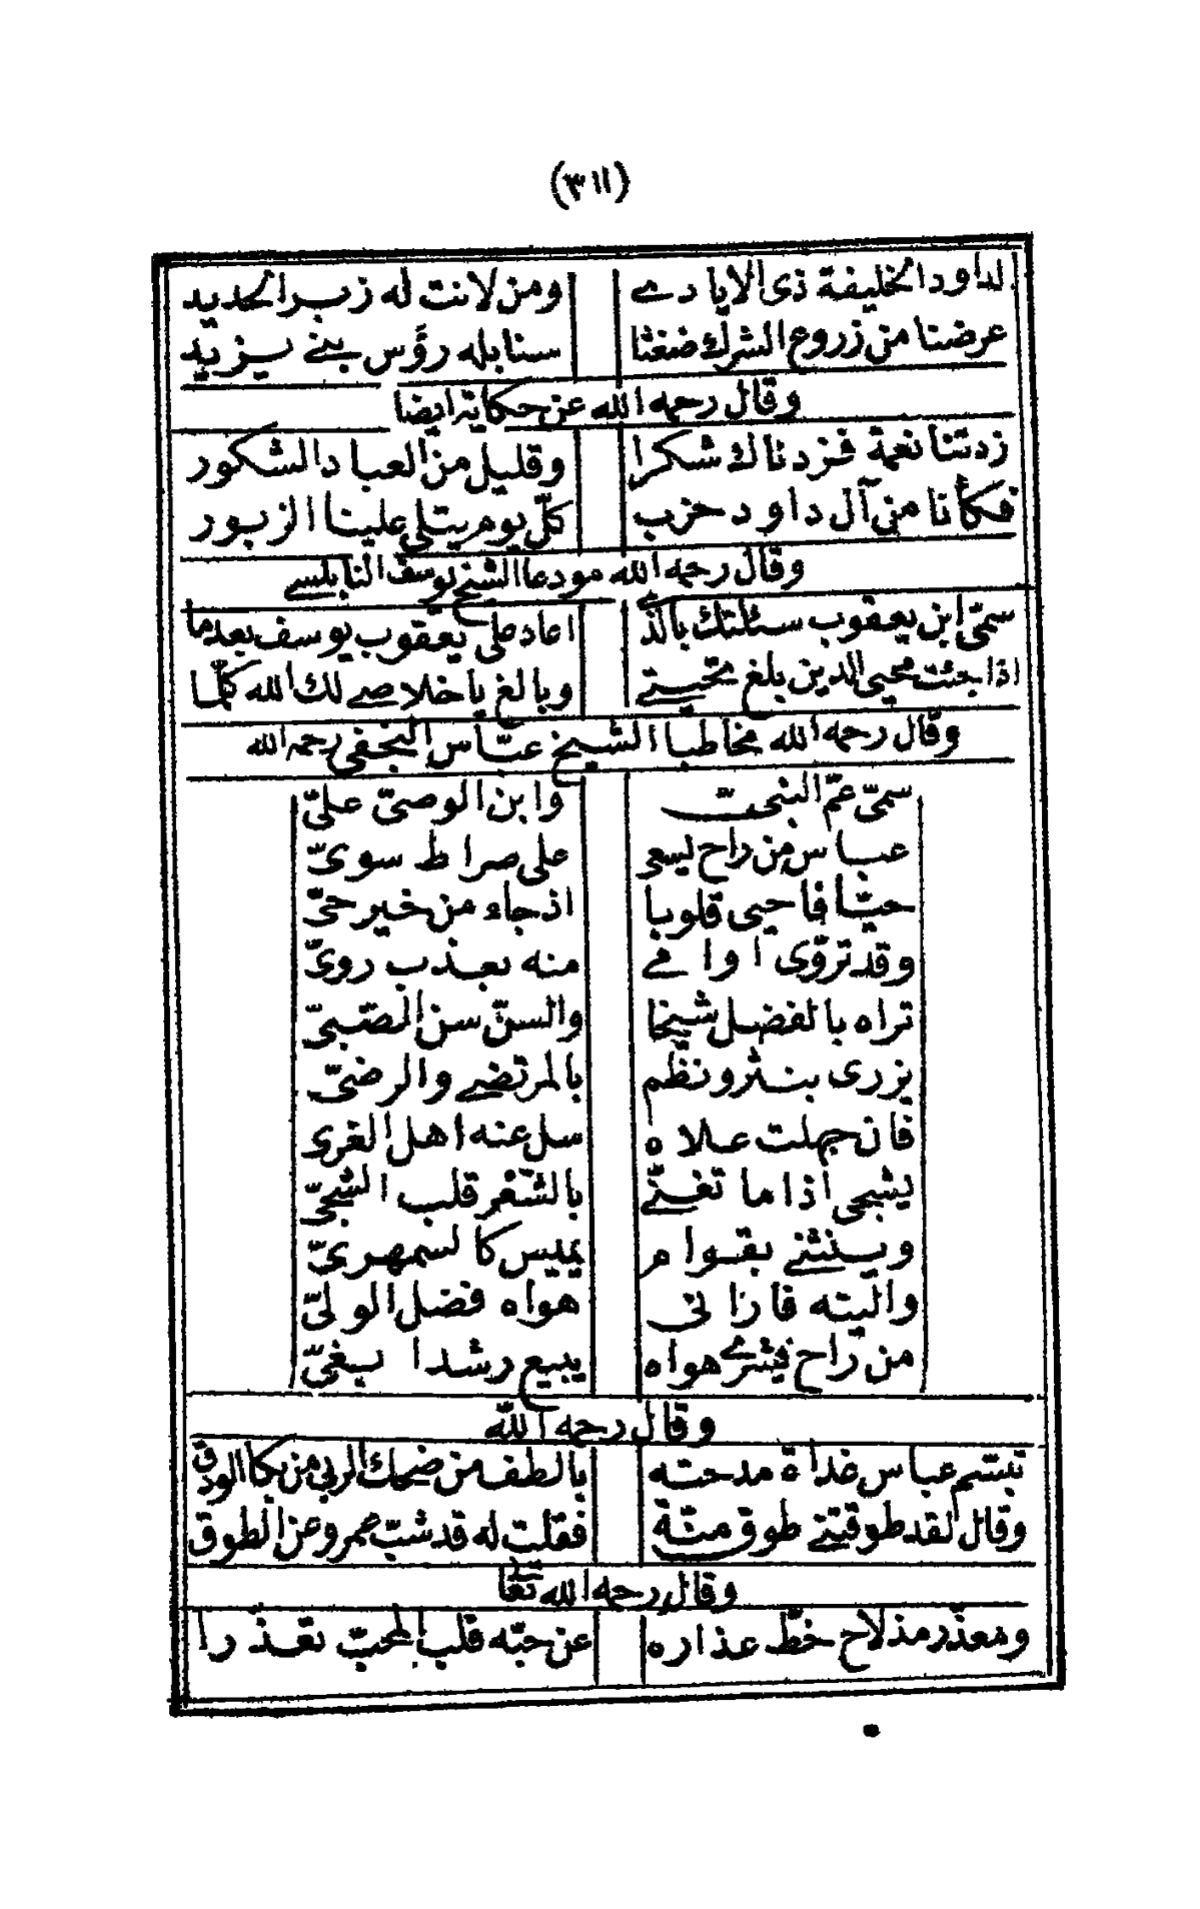 (٣١١)
لداود الخليفة ذى الايادے ومن لانت له زبر الحديد
عرضنا من زروع الشرك ضغثا سنابله رؤس بنے يزيد
وقال رحمه الله عن حكاية ايضا
زدتنا نعمة فزدناك شكرا وقليل من العباد الشكور
فكأنا من آل داود حزب كلّ يوم يتلى علينا الزبور
وقال رحمه الله مودعا الشيخ يوسف النابلسے
سمّى ابن يعقوب سئلتك بالذے اعاد على يعقوب يوسف بعدما
اذا جئت محيى الدين بلغ تحيتے وبالغ ياخلاصے لك الله كلّما
وقال رحمه الله مخاطبا الشيخ عبّاس النجفى رحمه الله
سمىّ عمّ النبىّ وابن الوصىّ علىّ
عباس من راح يسعى على صراط سوىّ
حيّا فاحيى قلوبا اذ جاء من خير حىّ
وقد تروّى اوامے منه بعذب روىّ
تراه بالفضل شيخا والسنّ سن الصّبىّ
يزرى بنثر ونظم بالمرتضے والرضىّ
فان جهلت علاه سل عنه اهل الغرى
يشجى اذا ما تغنّے بالشّعر قلب الشجىّ
وينثنے بقوام يميس كالسمهرىّ
واليته فازانى هواه فضل الولىّ
من راح يشرے هواه يبيع رشدا بغىّ
وقال رحمه اللّه
تبسّم عباس غداة مدحته بالطف من ضحك الربى من بكا الودق
وقال لقد طوقتنے طوق منّة فقلت له قد شبّ عمرو عن الطوق
وقال رحمه الله تعا
ومعذّر مذ لاح خطّ عذاره عن حبّه قلب المحبّ تعذرا